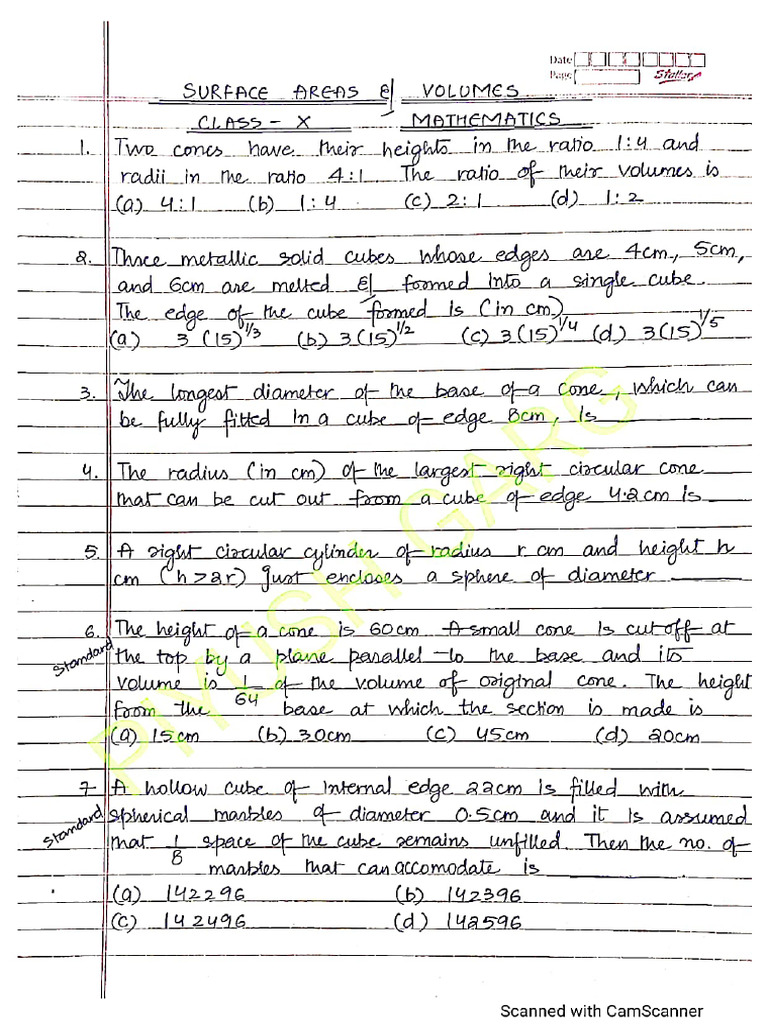 Date
Page
Stellar
SURFACE AREAS & VOLUMES
CLASS - X MATHEMATICS
1. Two cones have their heights in the ratio 1:4 and
radii in the ratio 4:1. The ratio of their volumes is
(a) 4:1 (b) 1:4 (c) 2:1 (d) 1:2
2. Three metallic solid cubes whose edges are 4cm, 5cm,
and 6cm are melted & formed into a single cube.
The edge of the cube formed is (in cm)
(a) 3(15)^1/3 (b) 3(15)^1/2 (c) 3(15)^1/4 (d) 3(15)^1/5
3. The longest diameter of the base of a cone, which can
be fully fitted in a cube of edge 8cm, is
4. The radius (in cm) of the largest right circular cone
that can be cut out from a cube of edge 4.2cm is
5. A right circular cylinder of radius r cm and height h
cm (h>2r) just encloses a sphere of diameter
6. The height of a cone is 60cm. A small cone is cut off at
Standard the top by a plane parallel to the base and its
volume is 1/64 of the volume of original cone. The height
from the base at which the section is made is
(a) 15cm (b) 30cm (c) 45cm (d) 20cm
7 A hollow cube of internal edge 22cm is filled with
Standard spherical marbles of diameter 0.5cm and it is assumed
that 1/8 space of the cube remains unfilled. Then the no. of
marbles that can accomodate is
(a) 142296 (b) 142396
(c) 142496 (d) 142596
PIYUSH GARG
Scanned with CamScanner